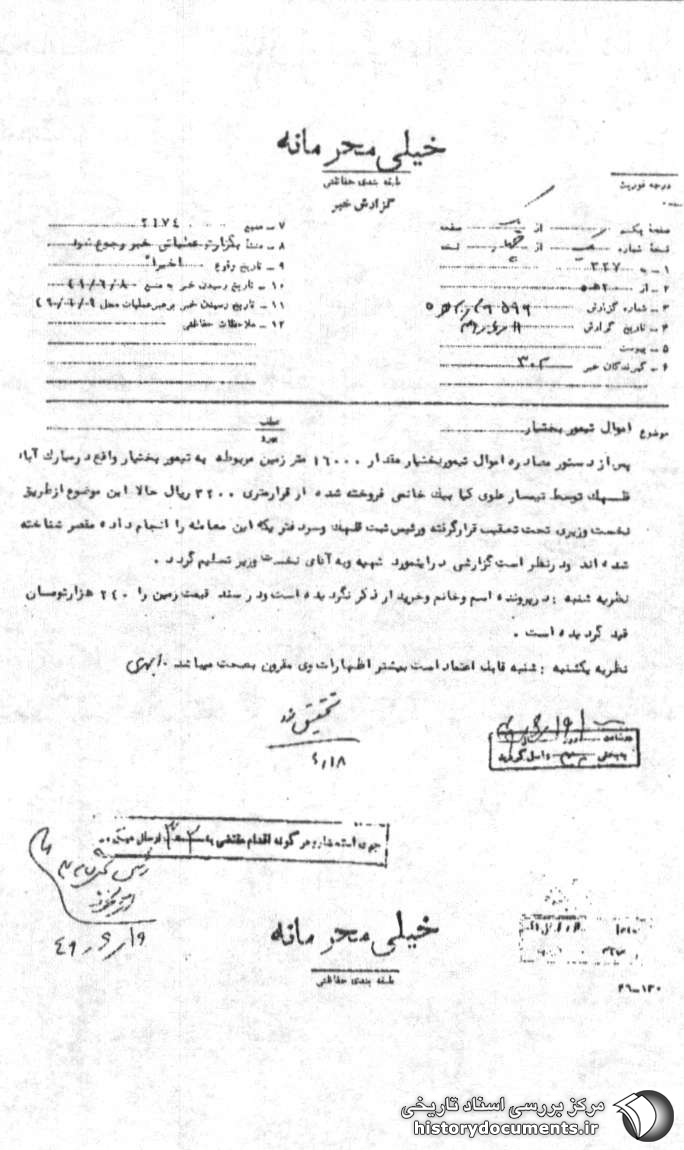 خیلی محرمانه
طبقه بندی حفاظتی
گزارش خبر
درجه فوریت
صفحه یکم از یک صفحه
نسخه شماره یک از نسخه
۱ – به ۳۲۷
۲ – از ۲۰ ه ۵
۳ – شماره گزارش
۴ – تاریخ گزارش
۵ – پیوست
۶ – گیرندگان خبر ۳۰۲
۷ – منبع ۲۱۷۴
۸ – منشأ بگزارت عملیاتی خبر رجوع شود
۹ – تاریخ وقوع اخیراً
۱۰ – تاریخ رسیدن خبر به منبع ۴۹/۶/۸
۱۱ – تاریخ رسیدن خبر برهبر عملیات محل ۴۹/۶/۹
۱۲ – ملاحظات حفاظتی
موضوع اموال تیمور بختیار
عطف
پیرو
پس از دستور مصادره اموال تیموربختیار مقدار ۱۶۰۰۰ متر زمین مربوطه به تیمور بختیار واقع در مبارک آباد
قلهک توسط تیمسار علوی کیا بیک خانمی فروخته شده از قرارمتری ۳۲۰۰ ریال حالا این موضوع ازطریق
نخست وزیری تحت تعقیب قرارگرفته ورئیس ثبت قلهک وسردفتریکه این معامله را انجام داده مقصر شناخته
شده اند ودرنظر است گزارشی دراینمورد تهیه وبه آقای نخست وزیر تسلیم گردد .
نظریه شنبه : درپرونده اسم وخانم وخریدار ذکر نگردیده است ودر سند قیمت زمین را ۲۴۰ هزارتومان
قید گردیده است .
نظریه یکشنبه : شنبه قابل اعتماد است بیشتر اظهارات وی مقرون بصحت میباشد .
تحقیق شد
۶/۱۸
واصل گردید
جهت استحضار و هر گونه اقدام مقتضی به ارسال میگردد
۴۹/۶/۱۹
خیلی محرمانه
طبقه بندی حفاظتی
۲۶–۱۳۰
مرکز بررسی اسناد تاریخی
historydocuments.ir